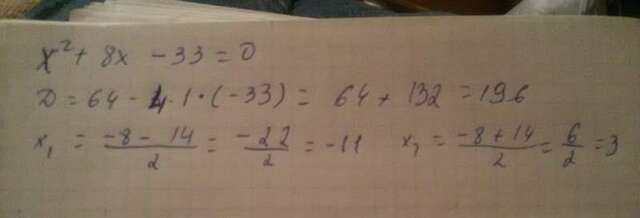 x² + 8x - 33 = 0
D = 64 - 4·1·(-33) = 64 + 132 = 196
x₁ = (-8 - 14)/2 = -22/2 = -11 x₂ = (-8 + 14)/2 = 6/2 = 3